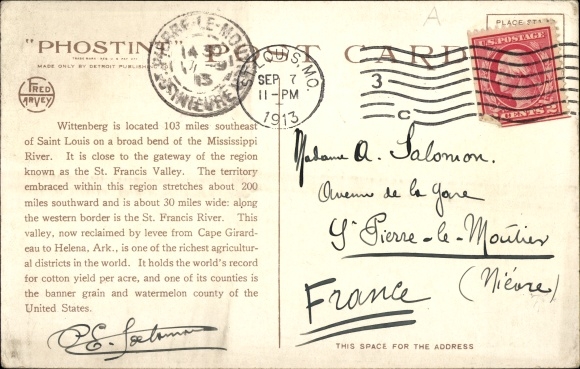 A
"PHOSTINT" POST CARD
MADE ONLY BY DETROIT PUBLISHING
PLACE STAMP
FRED HARVEY
ST PIERRE-LE-MOUTIER
NIÈVRE
ST. LOUIS, MO.
SEP 7
11-PM
1913
3
C
U.S. POSTAGE
2 CENTS 2
Wittenberg is located 103 miles southeast
of Saint Louis on a broad bend of the Mississippi
River. It is close to the gateway of the region
known as the St. Francis Valley. The territory
embraced within this region stretches about 200
miles southward and is about 30 miles wide: along
the western border is the St. Francis River. This
valley, now reclaimed by levee from Cape Girard-
eau to Helena, Ark., is one of the richest agricultur-
al districts in the world. It holds the world's record
for cotton yield per acre, and one of its counties is
the banner grain and watermelon county of the
United States.
P.E. Salomon
Madame A. Salomon.
Avenue de la Gare
St Pierre-le-Moutier
(Nièvre)
France
THIS SPACE FOR THE ADDRESS